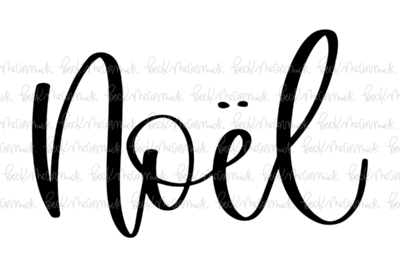 Noël